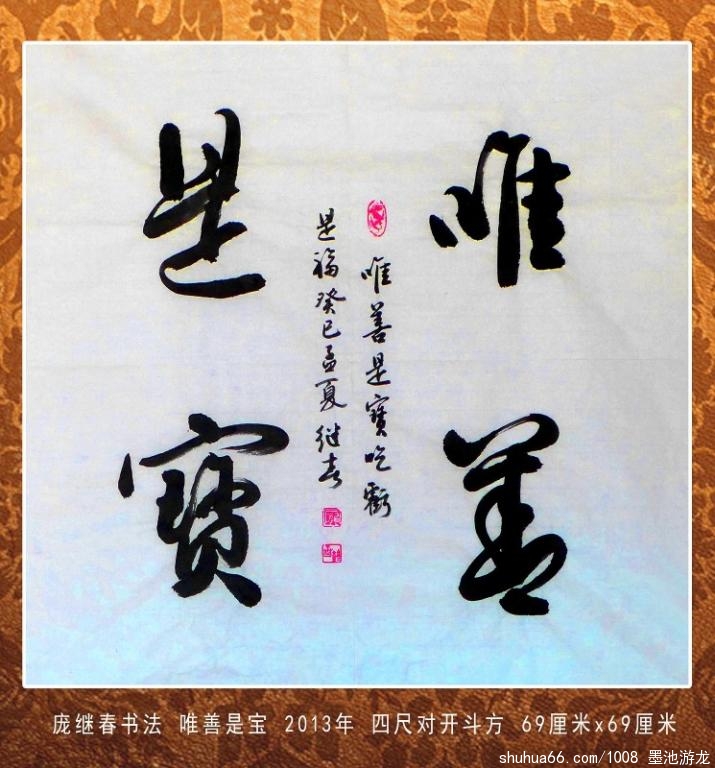 唯善
是寶
唯善是寶吃虧
是福癸巳孟夏继春
庞继春书法 唯善是宝 2013年 四尺对开斗方 69厘米x69厘米
shuhua66.com/1008 墨池游龙